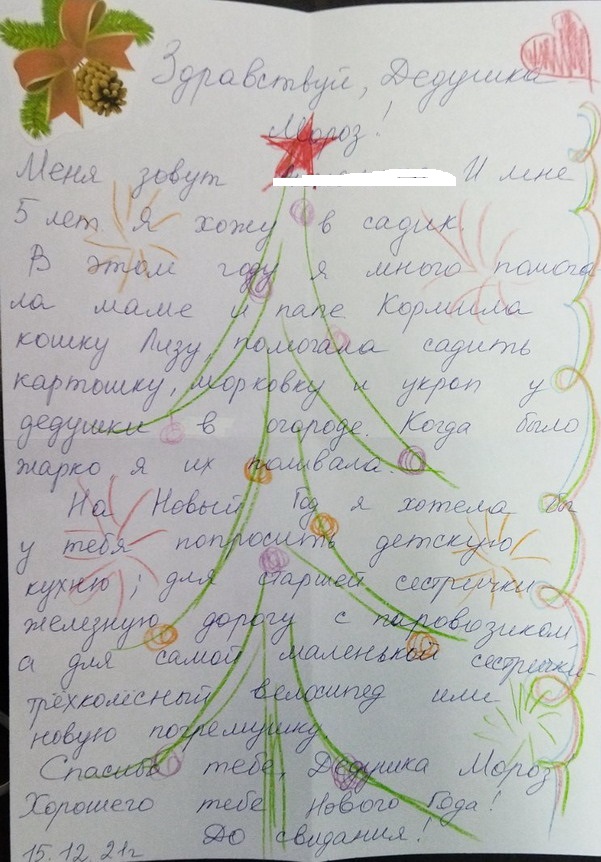 Здравствуй, Дедушка
Мороз!
Меня зовут И мне
5 лет. Я хожу в садик.
В этом году я много помога-
ла маме и папе Кормила
кошку Лизу, помогала садить
картошку, морковку и укроп у
дедушки в огороде. Когда было
жарко я их поливала.
На Новый Год я хотела бы
у тебя попросить детскую
кухню; для старшей сестрички
железную дорогу с паровозиком,
а для самой маленькой сестрички-
трёхколёсный велосипед или
новую погремушку.
Спасибо тебе, Дедушка Мороз
Хорошего тебе Нового Года!
До свидания!
15.12.21г